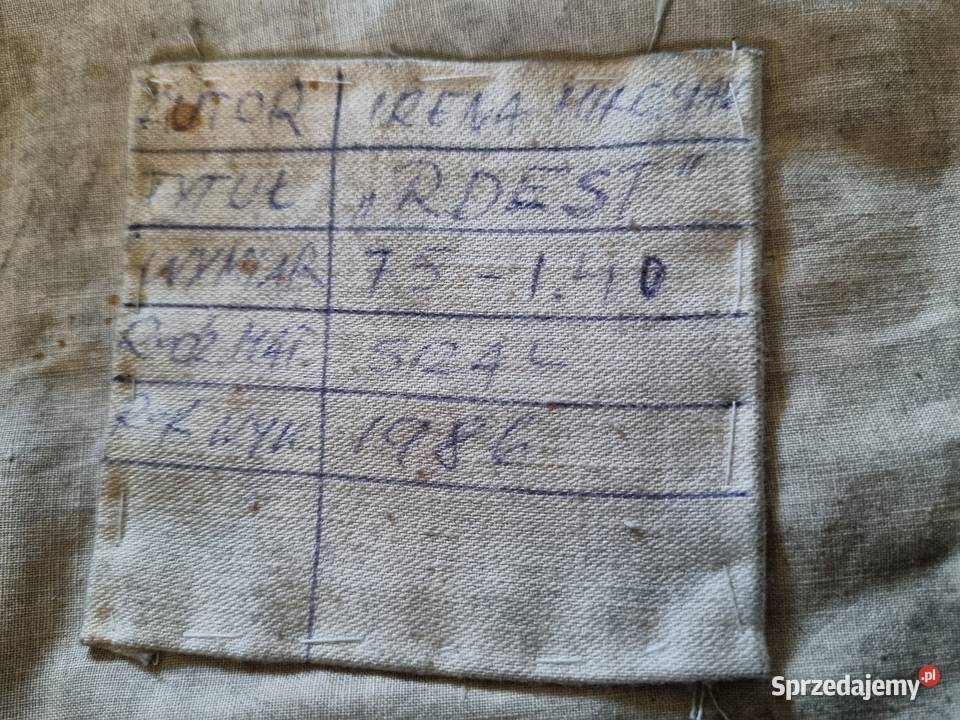 AUTOR IRENA
TYTUŁ „RDEST"
WYMIAR 75-1.40
RODZ MAT. SIZAL
ROK WYK 1986
Sprzedajemy.pl